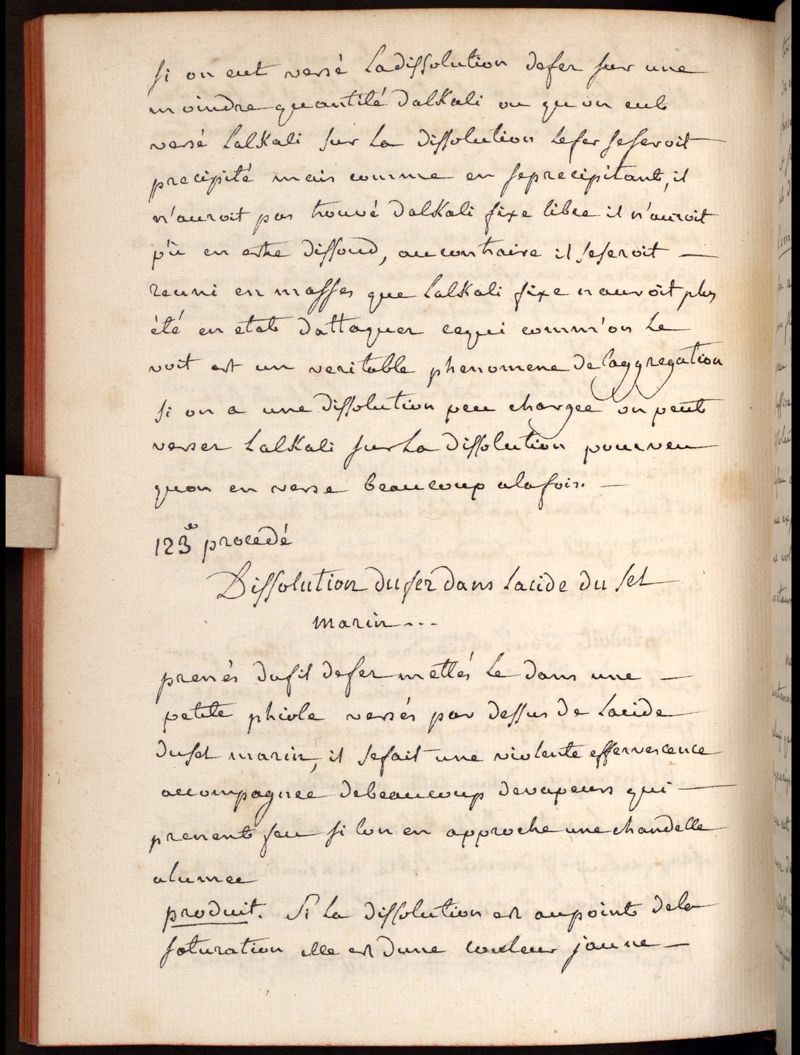 si on eut versé la dissolution de fer sur une
moindre quantité d'alkali ou qu'on eut
versé l'alkali sur la dissolution le fer se seroit
precipité mais comme en se precipitant, il
n'auroit pas trouvé d'alkali fixe libre il n'auroit
pu en estre dissoud, au contraire il se seroit —
reuni en masses que l'alkali fixe n'auroit plus
été en etat d'attaquer ce qui comm'on le
voit est un veritable phenomene de l'aggregation
si on a une dissolution peu chargée on peut
verser l'alkali sur la dissolution pourveu
qu'on en verse beaucoup a la fois. —
123e procedé
Dissolution du fer dans l'acide du sel
marin...
prenés du fil de fer mettés le dans une —
petite phiole versés par dessus de l'acide
du sel marin, il se fait une violente effervescence
accompagnée de beaucoup de vapeurs qui —
prenent feu si l'on en approche une chandelle
alumée
produit. Si la dissolution est au point de la
saturation elle est d'une couleur jaune —